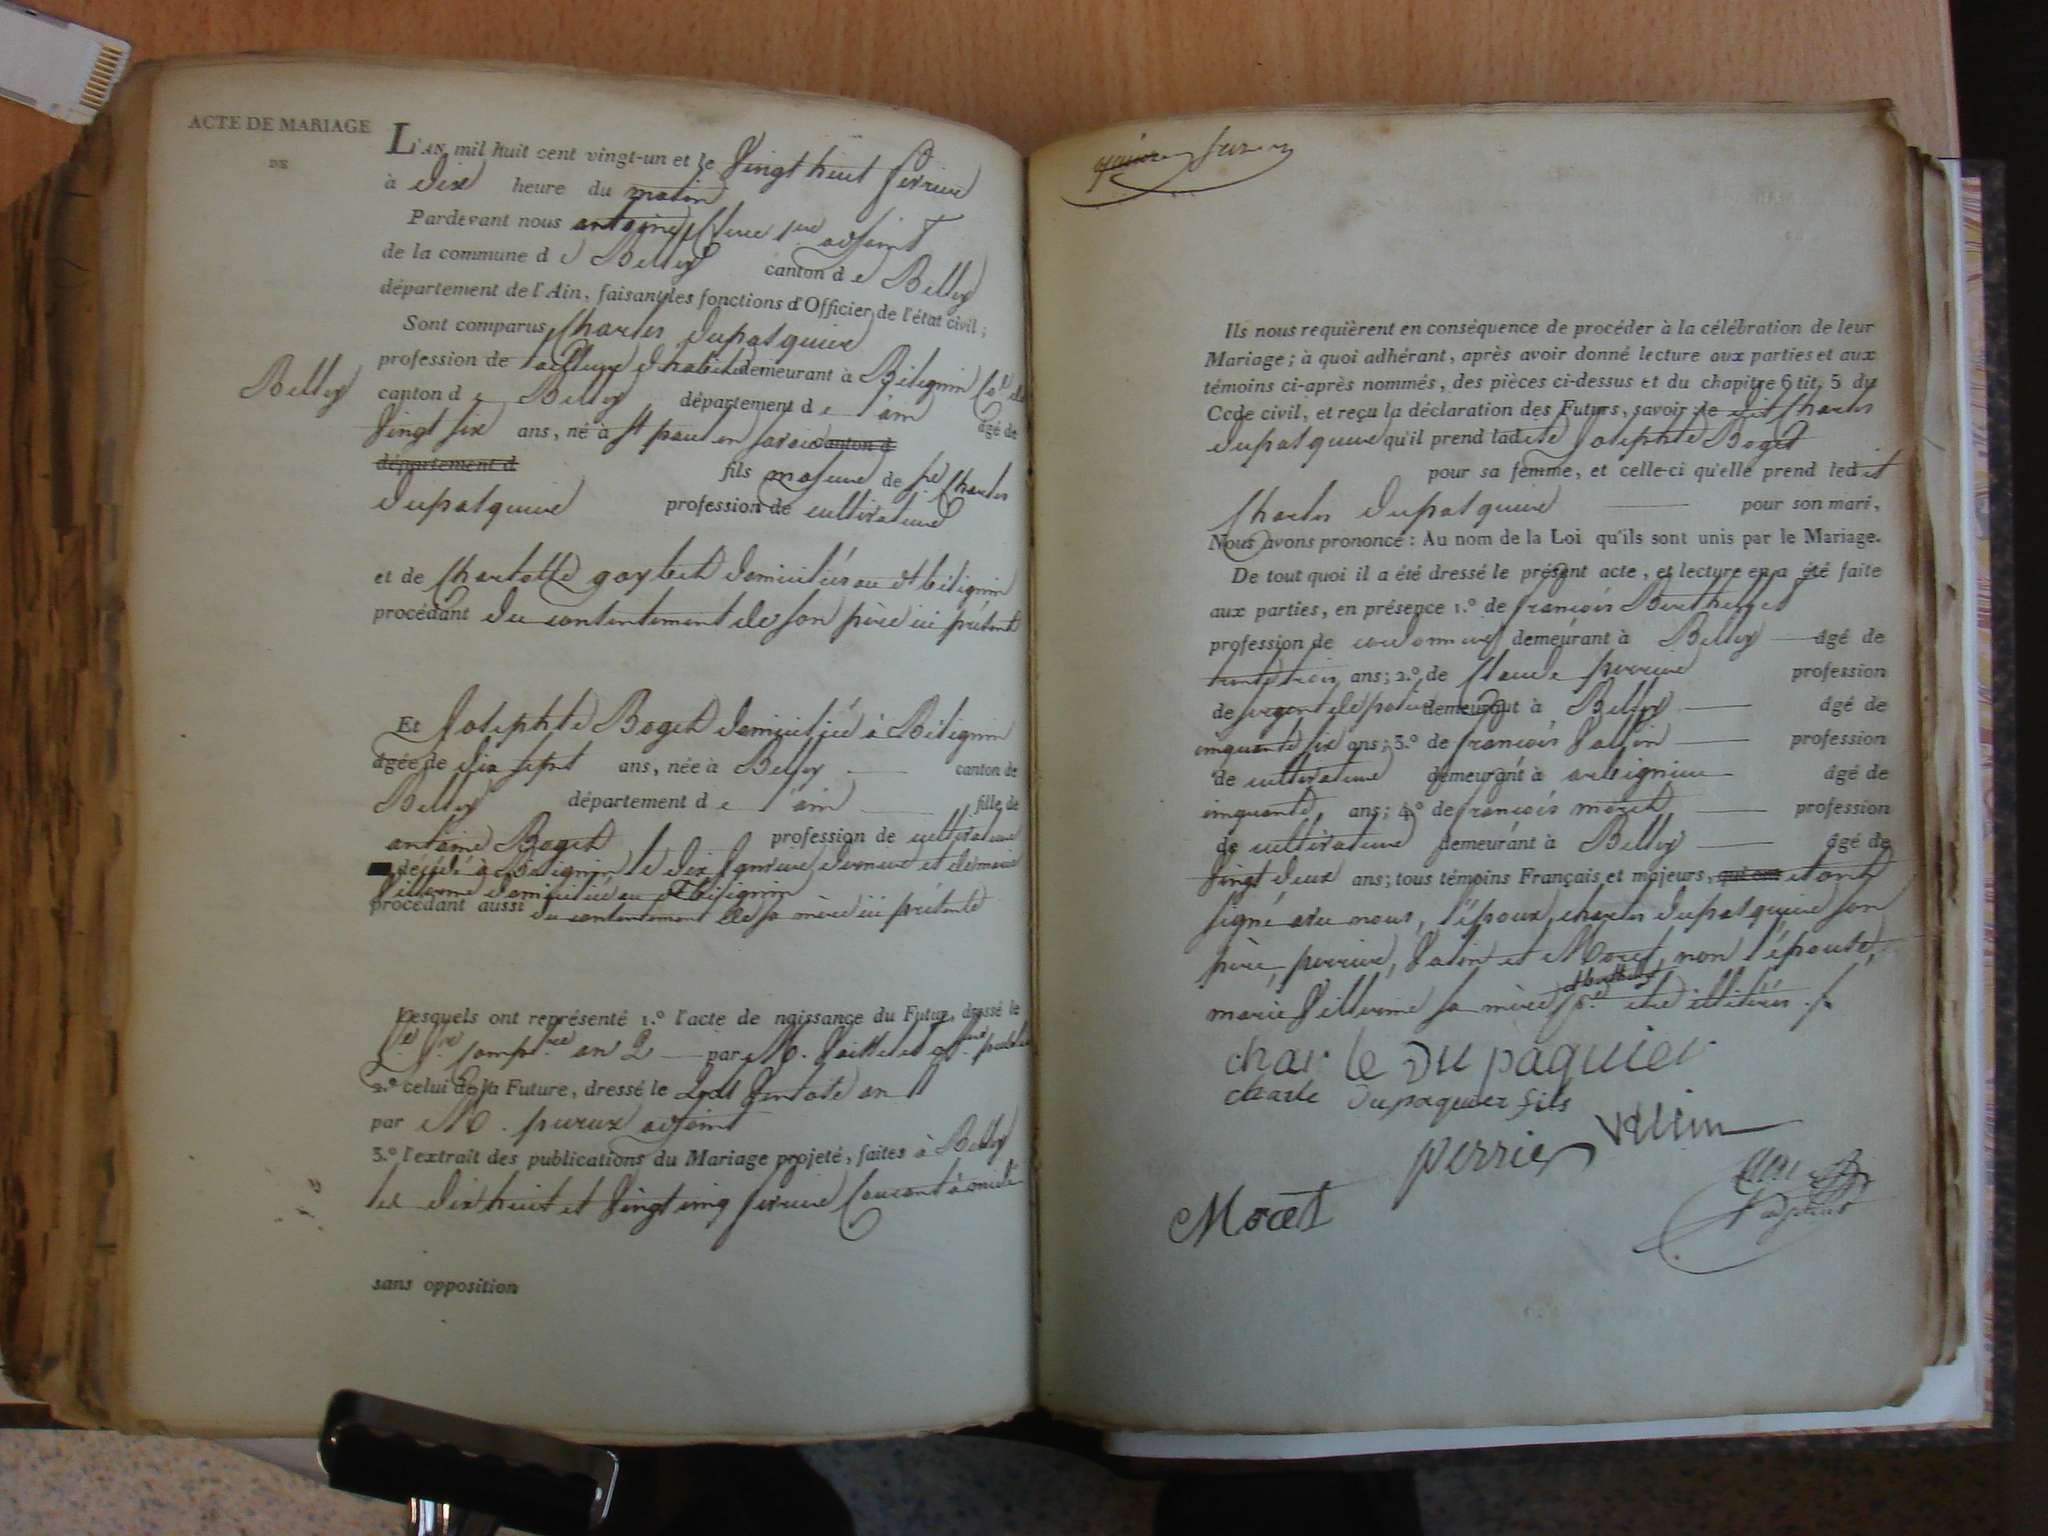 ACTE DE MARIAGE
DE
Belley
L'AN mil huit cent vingt-un et le Vingt huit fevrier
à dix heure du matin
Pardevant nous antoine 1er adjoint
de la commune de Belley canton de Belley
département de l'Ain, faisant les fonctions d'Officier de l'état civil;
Sont comparus Charles dupasquier
profession de tailleur d'habits demeurant à Bitignin
canton de Belley département de l'ain âgé de
Vingt six ans, né à St paul en savoie canton d
département d fils majeur de Charles
dupasquier profession de cultivateur
et de Charlotte domiciliés au dt bitignin
procédant du consentement de son père ici présent
Et Josephte Boget domiciliée à Bitignin
âgée de dix sept ans, née à Belley canton de
Belley département de l'ain fille de
antoine Boget profession de cultivateur
décédé à Bitignin le dix Janvier dernier et de marie
Villerme domiciliée au dt bitignin
procédant aussi du consentement de sa mère ici présente
Lesquels ont représenté 1.º l'acte de naissance du Futur, dressé le
an 2 par M.
2.º celui de la Future, dressé le Ventose an 11
par M. adjoint
3.º l'extrait des publications du Mariage projeté, faites à Belley
les dix huit et Vingt cinq fevrier Courant à midi
sans opposition
Ils nous requièrent en conséquence de procéder à la célébration de leur
Mariage; à quoi adhérant, après avoir donné lecture aux parties et aux
témoins ci-après nommés, des pièces ci-dessus et du chapitre 6 tit. 5 du
Code civil, et reçu la déclaration des Futurs, savoir: le dit Charles
dupasquier qu'il prend ladite Josephte Boget
pour sa femme, et celle-ci qu'elle prend ledit
Charles dupasquier pour son mari,
Nous avons prononcé: Au nom de la Loi qu'ils sont unis par le Mariage.
De tout quoi il a été dressé le présent acte, et lecture en a été faite
aux parties, en présence 1.º de françois Berthelet
profession de cordonnier demeurant à Belley âgé de
trente trois ans; 2.º de Claude perrier profession
de sergent de police demeurant à Belley âgé de
cinquante six ans; 3.º de françois Vallin profession
de cultivateur demeurant à âgé de
cinquante ans; 4.º de françois moret profession
de cultivateur demeurant à Belley âgé de
Vingt deux ans; tous témoins Français et majeurs, qui ont et ont
signé avec nous, l'époux, charles dupasquier son
père, perrier, Valin et Moret, non l'épouse,
Berthelet
marie Villerme sa mère illiterés
charle Dupaquier
charle Dupaquier fils
Vallin
perrier
Moret
adjoint